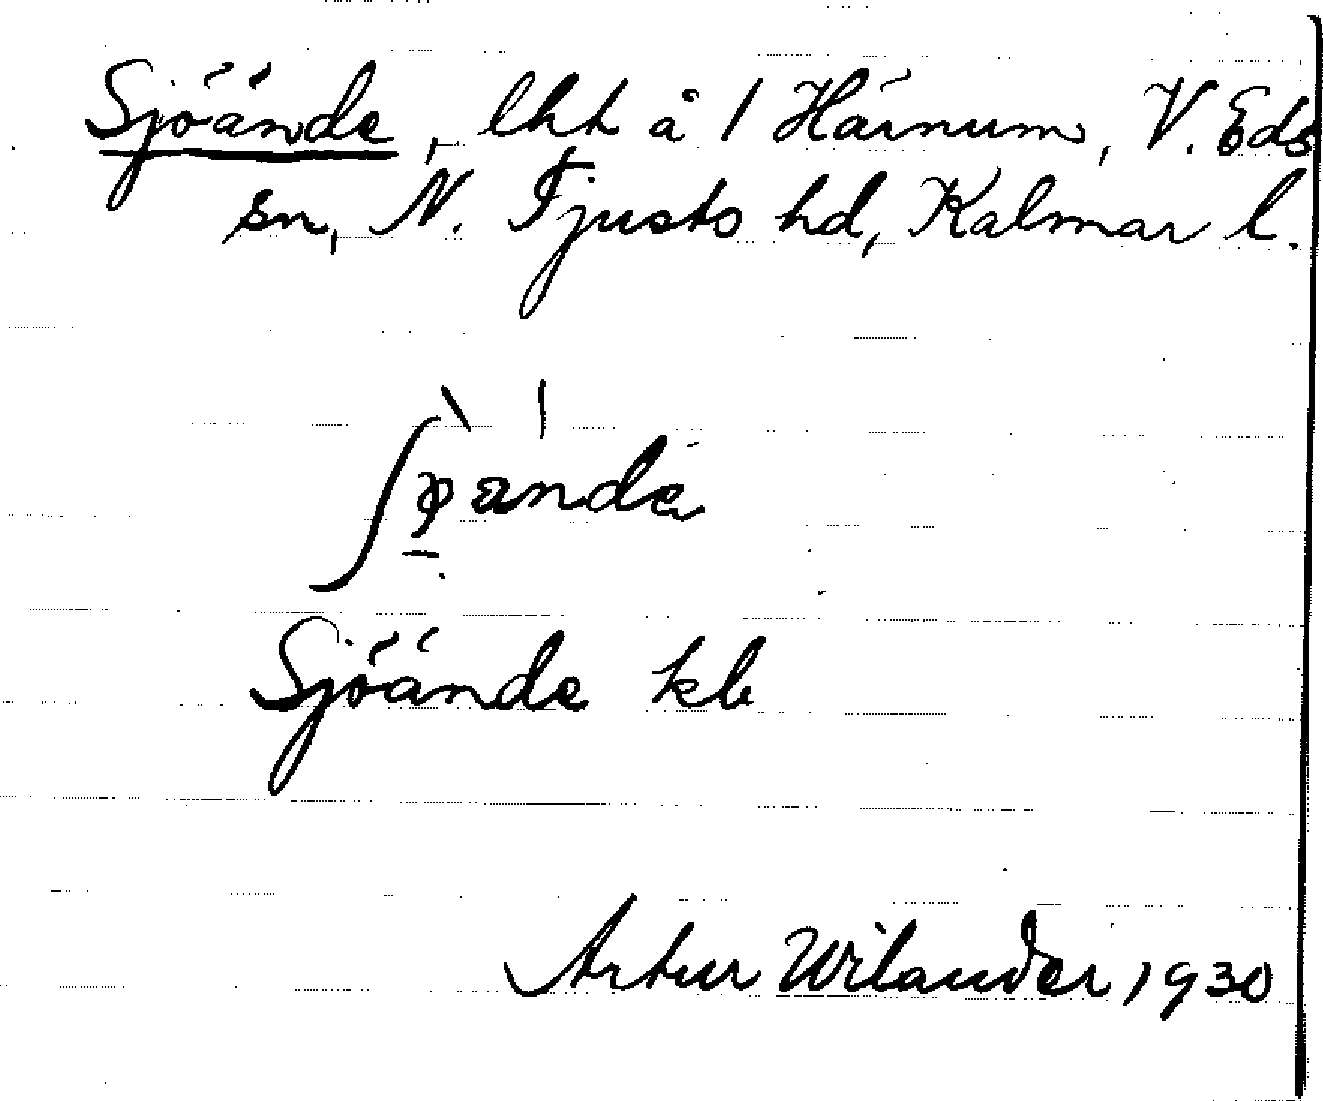 Sjöände, lht å 1 Härnum, V. Eds
sn, N. Tjusts hd, Kalmar l.
Sjöände kb
Artur Wilander 1930